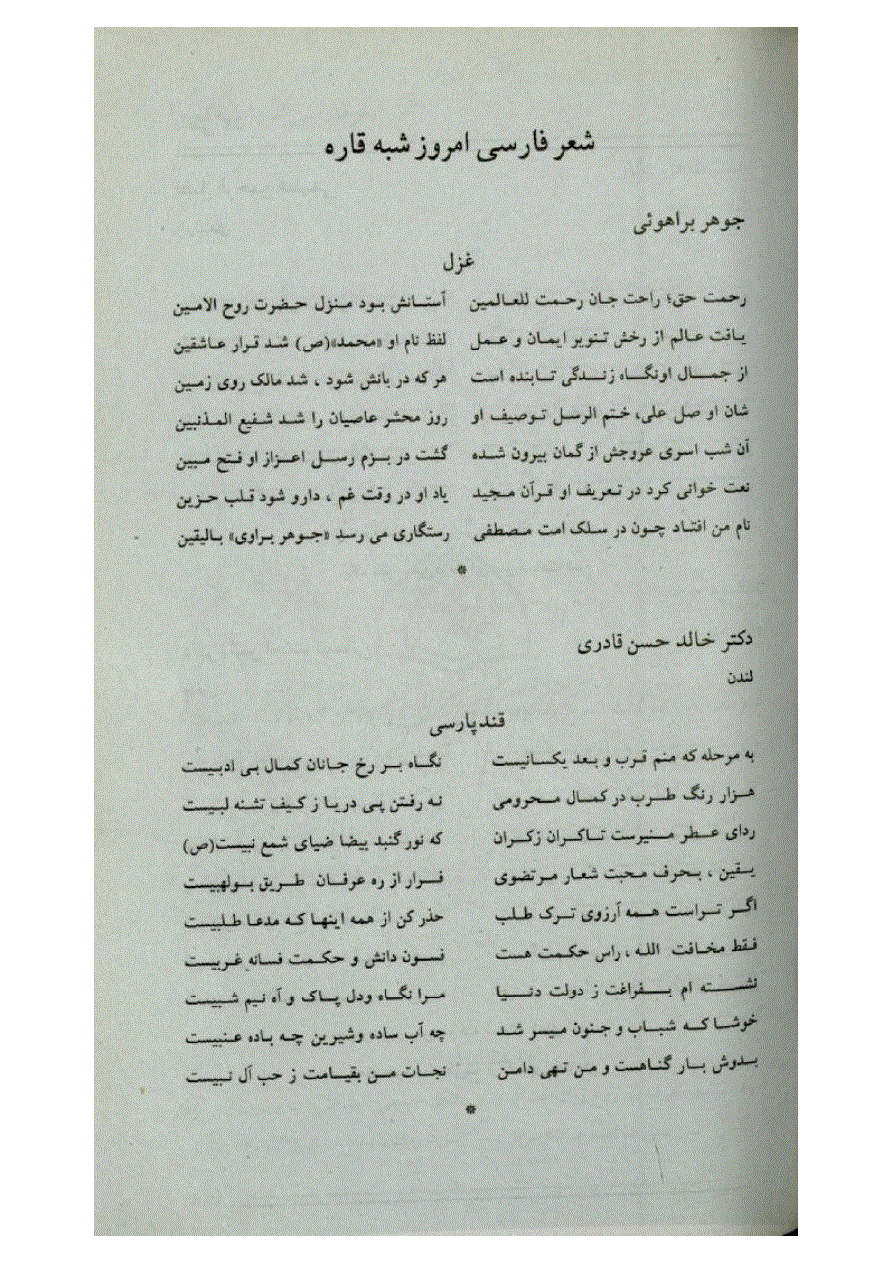 شعر فارسی امروز شبه قاره
جوهر براهوئی
غزل
رحمت حق؛ راحت جان رحمت للعالمین آستانش بود منزل حضرت روح الامین
یافت عالم از رخش تنویر ایمان و عمل لفظ نام او «محمد»(ص) شد قرار عاشقین
از جمال اونگاه زندگی تابنده است هر که در بانش شود ، شد مالک روی زمین
شان او صل علی، ختم الرسل توصیف او روز محشر عاصیان را شد شفیع المذنبین
آن شب اسری عروجش از گمان بیرون شده گشت در بزم رسل اعزاز او فتح مبین
نعت خوانی کرد در تعریف او قرآن مجید یاد او در وقت غم ، دارو شود قلب حزین
نام من افتاد چون در سلک امت مصطفی رستگاری می رسد «جوهر براوی» بالیقین
*
دکتر خالد حسن قادری
لندن
قندپارسی
به مرحله که منم قرب و بعد یکسانیست نگاه بر رخ جانان کمال بی ادبیست
هزار رنگ طرب در کمال محرومی نه رفتن پی دریا ز کیف تشنه لبیست
ردای عطر منیرست تاکران زکران که نور گنبد بیضا ضیای شمع نبیست(ص)
یقین ، بحرف محبت شعار مرتضوی فرار از ره عرفان طریق بولهبیست
اگر تراست همه آرزوی ترک طلب حذر کن از همه اینها که مدعا طلبیست
فقط مخافت الله ، راس حکمت هست فسون دانش و حکمت فسانه غربیست
نشسته ام بفراغت ز دولت دنیا مرا نگاه ودل پاک و آه نیم شبیست
خوشا که شباب و جنون میسر شد چه آب ساده وشیرین چه باده عنبیست
بدوش بار گناهست و من تهی دامن نجات من بقیامت ز حب آل نبیست
*